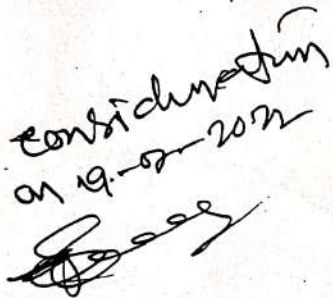 consideration
on 19-07-2022